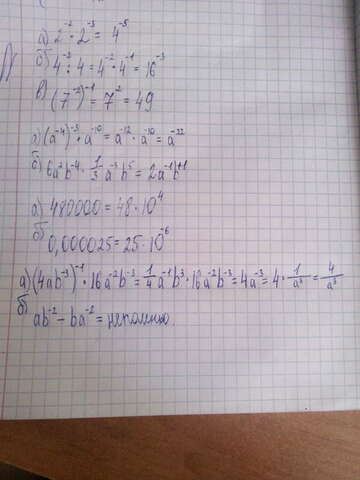 а) 2⁻² · 2⁻³ = 4⁻⁵
б) 4⁻³ : 4 = 4⁻² · 4⁻¹ = 16⁻³
в) (7⁻²)⁻¹ = 7² = 49
а) (a⁻⁴)⁻³ · a⁻¹⁰ = a⁻¹² · a⁻¹⁰ = a⁻²²
б) 6a²b⁻⁴ · 1/3 a⁻³b⁵ = 2a⁻¹b⁺¹
а) 480000 = 48 · 10⁴
б) 0,000025 = 25 · 10⁻⁶
а) (4ab⁻³)⁻¹ · 16a⁻²b⁻³ = 1/4 a⁻¹b³ · 16a⁻²b⁻³ = 4a⁻³ = 4 · 1/a³ = 4/a³
б) ab⁻² − ba⁻² = непомню.